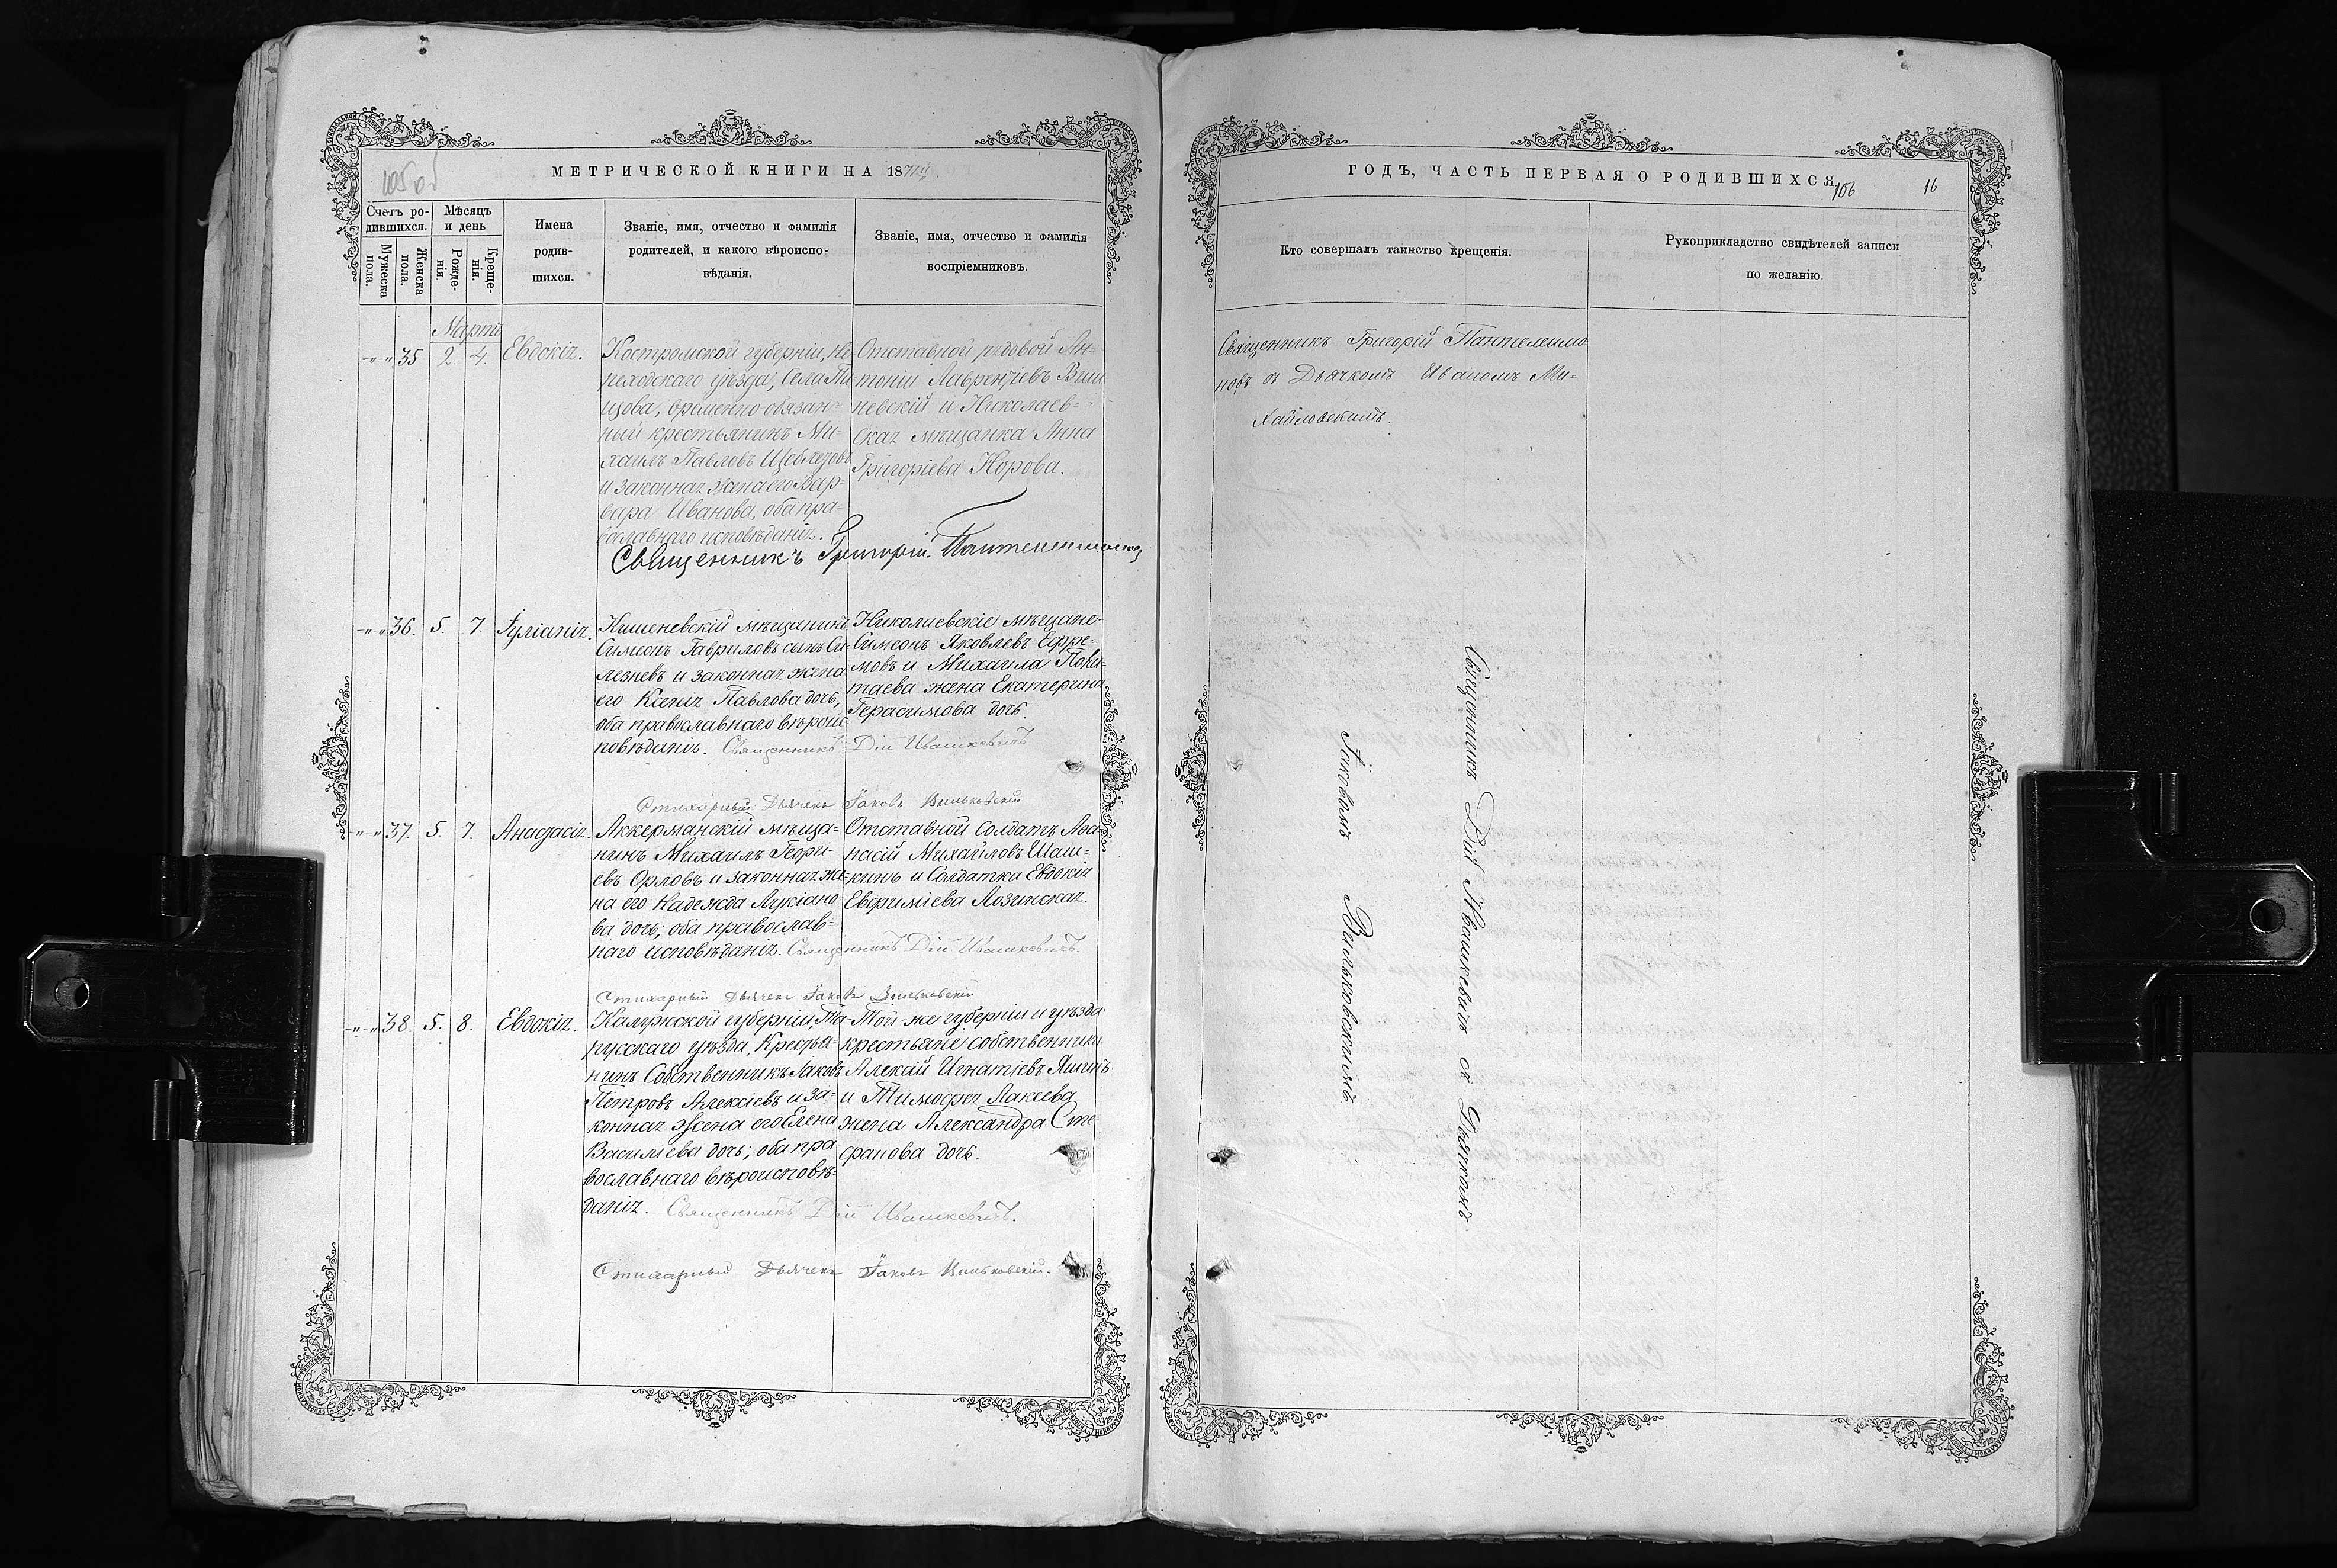 МЕТРИЧЕСКОЙ КНИГИ НА 1871й
Счетъ ро-
дившихся.
Мужеска
пола.
Женска
пола.
Мѣсяцъ
и день
Рожде-
нія.
Креще-
нія.
Имена
родив-
шихся.
Званіе, имя, отчество и фамилія
родителей, и какого вѣроиспо-
вѣданія.
Званіе, имя, отчество и фамилія
воспріемниковъ.
Мартъ
-"-"- 35 2. 4. Евдокія.
Костромской губерніи, Не
реходскаго уѣзда, Села
щова, временно обязан-
ный крестьянинъ Ми-
хаилъ Павловъ
и законная жена его Вар-
вара Иванова, оба пра-
вославнаго исповѣданія.
Отставной рядовой Ан-
тоній Лаврентіевъ Виш-
невскій и Николаев-
ская мѣщанка Анна
Григоріева Норова.
Священникъ Григорій Пантелеимоновъ
-"-"- 36. 5. 7. Іуліанія.
Кишеневскій мѣщанинъ
Симеонъ Гавриловъ сынъ Си-
лезневъ и законная жена
его Ксенія Павлова дочь,
оба православнаго вѣроис-
повѣданія.
Николаевскіе мѣщане
Симеонъ Яковлевъ Ефре-
мовъ и Михаила Пови-
таева жена Екатерина
Герасимова дочь.
Священникъ Дій Ивашкевичъ
Стихарный Дьячекъ Іаковъ Вильковскій
" " 37. 5. 7. Анафасія.
Аккерманскій мѣща-
нинъ Михаилъ Георгі-
евъ Орловъ и законная же-
на его Надежда Лукіано
ва дочь, оба православ-
наго исповѣданія.
Отставной Солдатъ Аѳа-
насій Михайловъ Шаш-
кинъ и Солдатка Евдокія
Евфиміева Лозинская.
Священникъ Дій Ивашкевичъ.
Стихарный Дьячекъ Іаковъ Вильковскій
-"-"- 38. 5. 8. Евдокія.
Калужской губерніи, Та-
русскаго уѣзда, Крестья-
нинъ Собственникъ Іаковъ
Петровъ Алексіевъ и за-
конная жена его Елена
Василіева дочь; оба пра-
вославнаго вѣроисповѣ-
данія.
Той-же губерніи и уѣзда
крестьяне собственники
Алексій Игнатіевъ Яшинъ
и Тимофея Лакеева
жена Александра Сте-
фанова дочь.
Священникъ Дій Ивашкевичъ.
Стихарный Дьячекъ Іаковъ Вильковскій.
ГОДЪ, ЧАСТЬ ПЕРВАЯ О РОДИВШИХСЯ
106
16
Кто совершалъ таинство крещенія.
Рукоприкладство свидѣтелей записи
по желанію.
Священникъ Григорій Пантелеимо
новъ съ Дьячкомъ Иваномъ Ми-
хайловскимъ.
Священникъ Дій Ивашкевичъ съ Дьячкомъ
Іаковомъ Вильковскимъ.